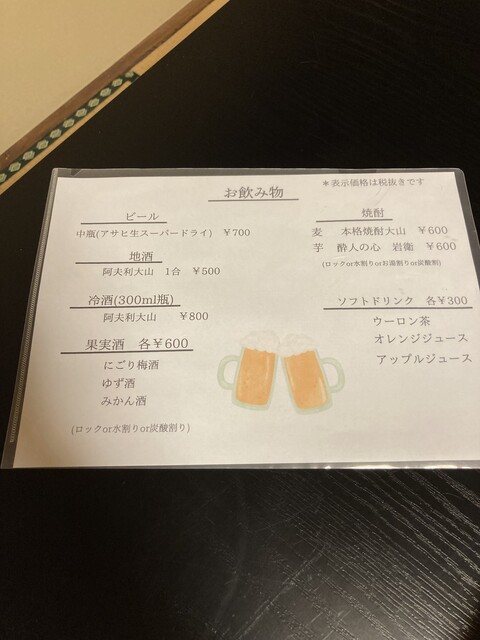 お飲み物
＊表示価格は税抜きです
ビール
中瓶(アサヒ生スーパードライ) ￥700
地酒
阿夫利大山 1合 ￥500
冷酒(300ml瓶)
阿夫利大山 ￥800
果実酒 各￥600
にごり梅酒
ゆず酒
みかん酒
(ロックor水割りor炭酸割り)
焼酎
麦 本格焼酎大山 ￥600
芋 酔人の心 岩衛 ￥600
(ロックor水割りorお湯割りor炭酸割)
ソフトドリンク 各￥300
ウーロン茶
オレンジジュース
アップルジュース